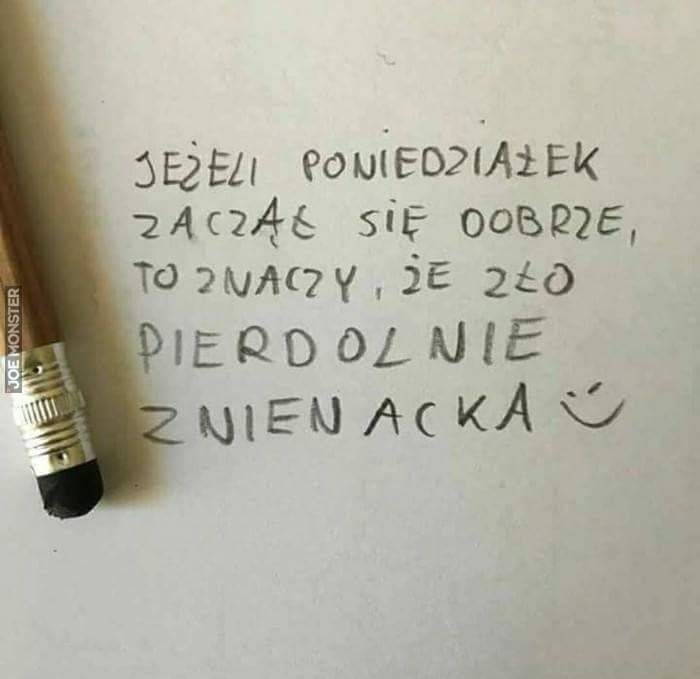 JEŻELI PONIEDZIAŁEK
ZACZĄŁ SIĘ DOBRZE,
TO ZNACZY, ŻE ZŁO
PIERDOLNIE
ZNIENACKA :)
JOE MONSTER